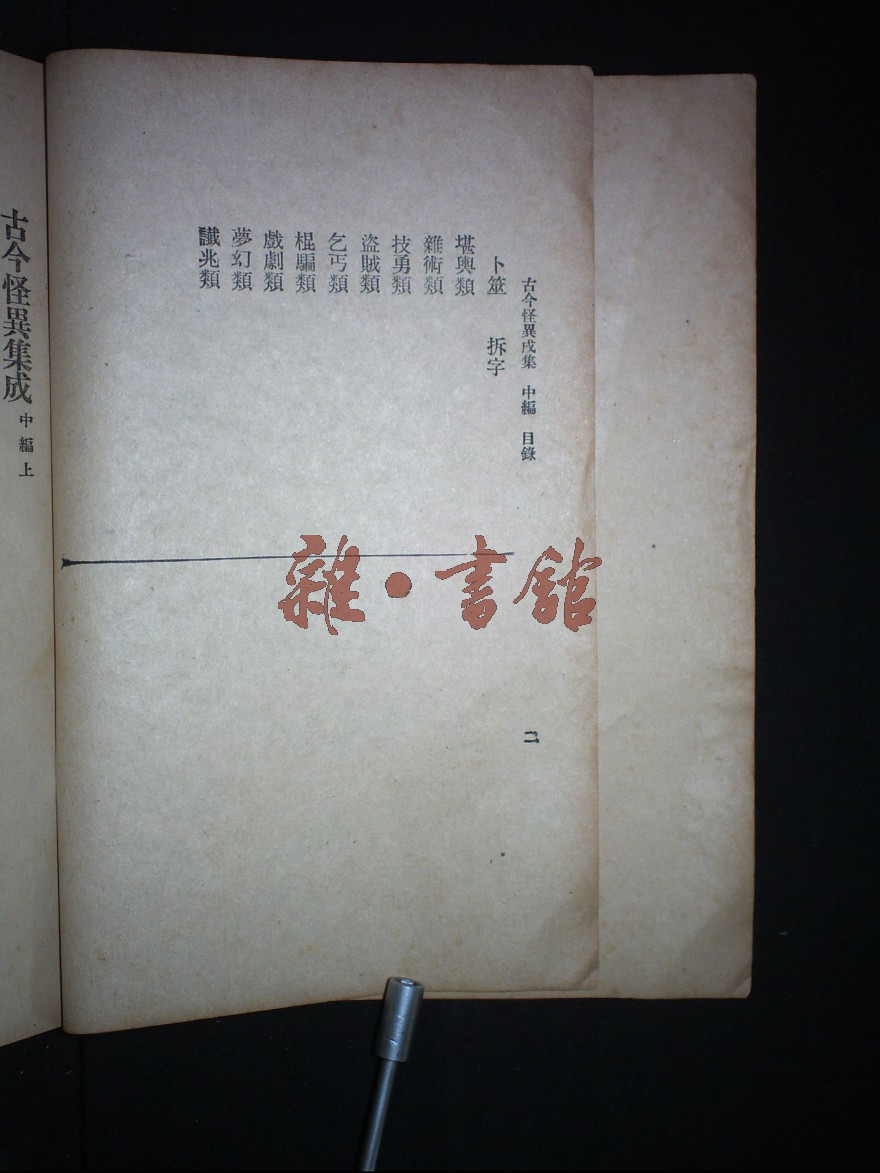 古今怪異集成 中編 目錄
卜筮 拆字
堪輿類
雜術類
技勇類
盜賊類
乞丐類
棍騙類
戲劇類
夢幻類
讖兆類
二
古今怪異集成 中編上
雜·書館